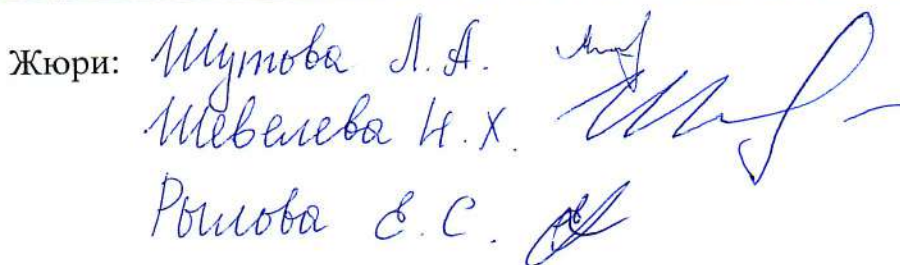 Жюри: Шутова Л.А.
Шевелева Н.Х.
Рылова Е.С.